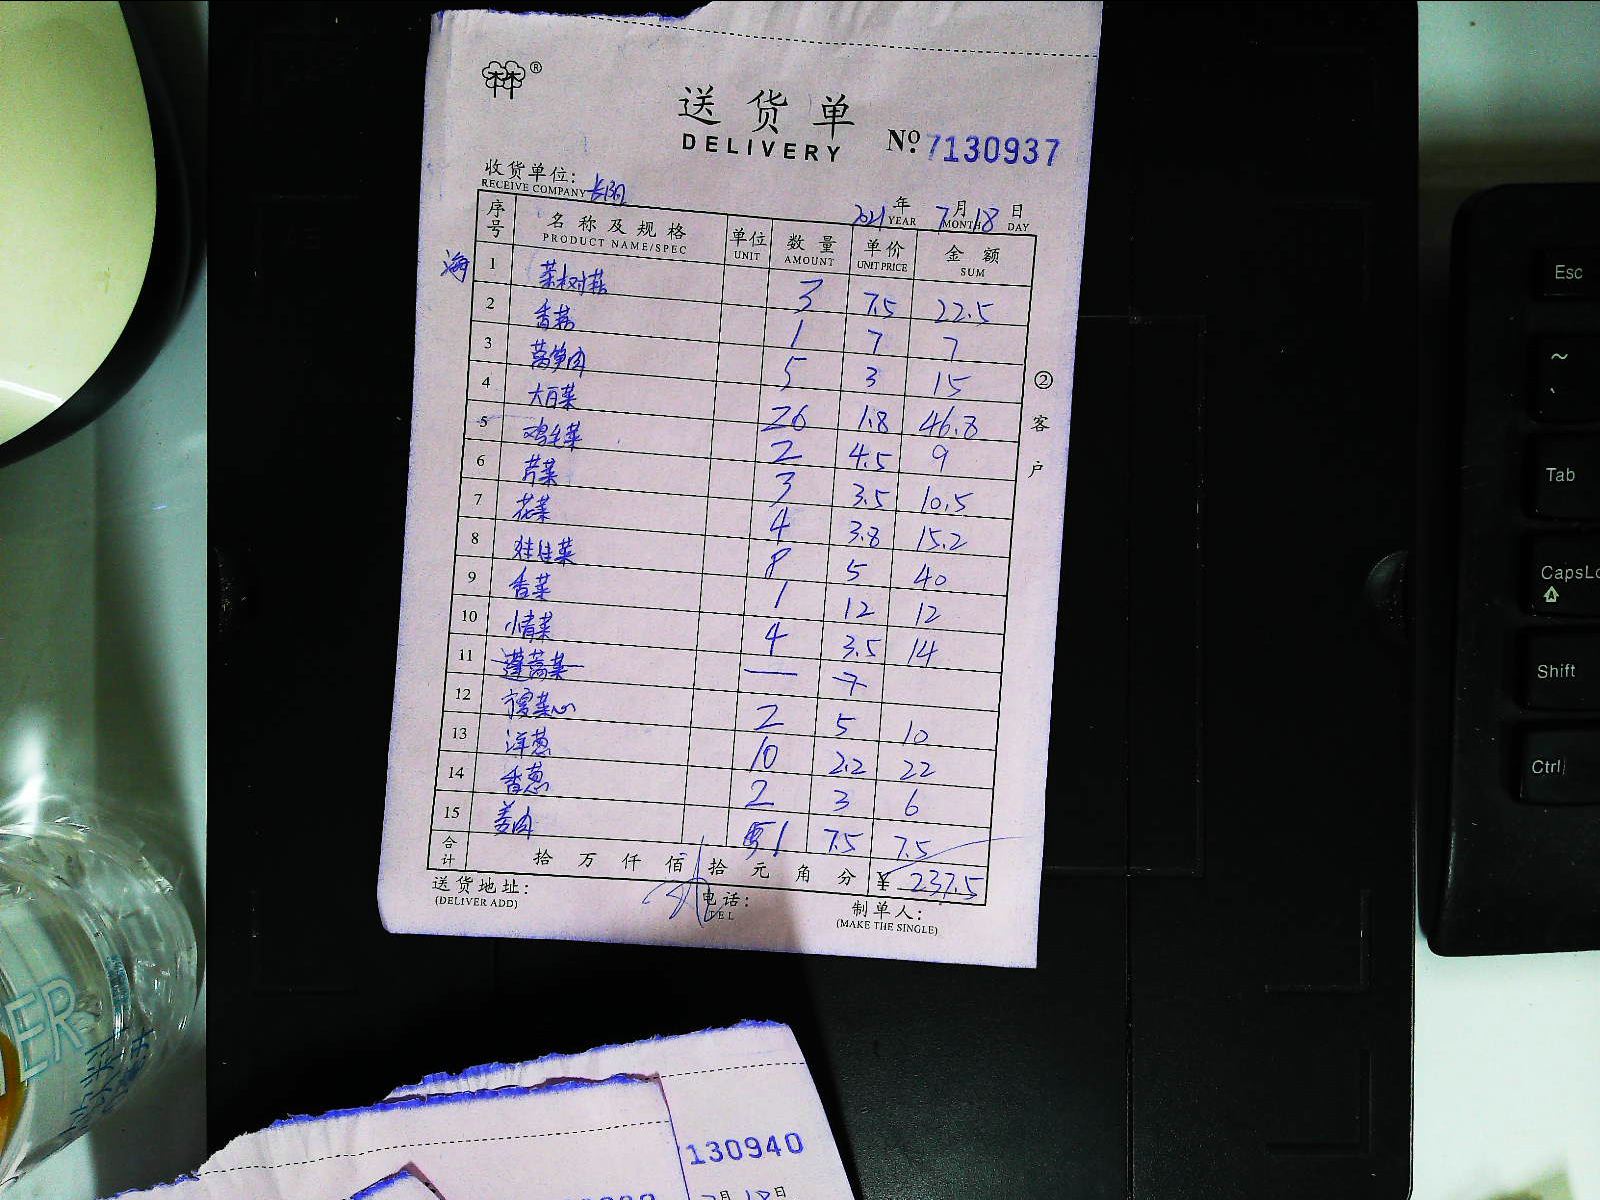 ®
送货单
DELIVERY
No. 7130937
收货单位:
RECEIVE COMPANY
2021 年 YEAR 7 月 MONTH 18 日 DAY
序号 名称及规格 PRODUCT NAME/SPEC 单位 UNIT 数量 AMOUNT 单价 UNIT PRICE 金额 SUM
海
1 茶树菇 3 7.5 22.5
2 香菇 1 7 7
3 莴笋肉 5 3 15
4 大白菜 26 1.8 46.8
5 鸡毛菜 2 4.5 9
6 芹菜 3 3.5 10.5
7 花菜 4 3.8 15.2
8 娃娃菜 8 5 40
9 香菜 1 12 12
10 小青菜 4 3.5 14
11 蓬蒿菜 — 7
12 菜心 2 5 10
13 洋葱 10 2.2 22
14 香葱 2 3 6
15 姜肉 1 7.5 7.5
合计 拾 万 仟 佰 拾 元 角 分 ¥ 237.5
送货地址:
(DELIVER ADD)
电话:
TEL
制单人:
(MAKE THE SINGLE)
② 客户
Esc
~
Tab
CapsLo
Shift
Ctrl
ER
130940
7月18日